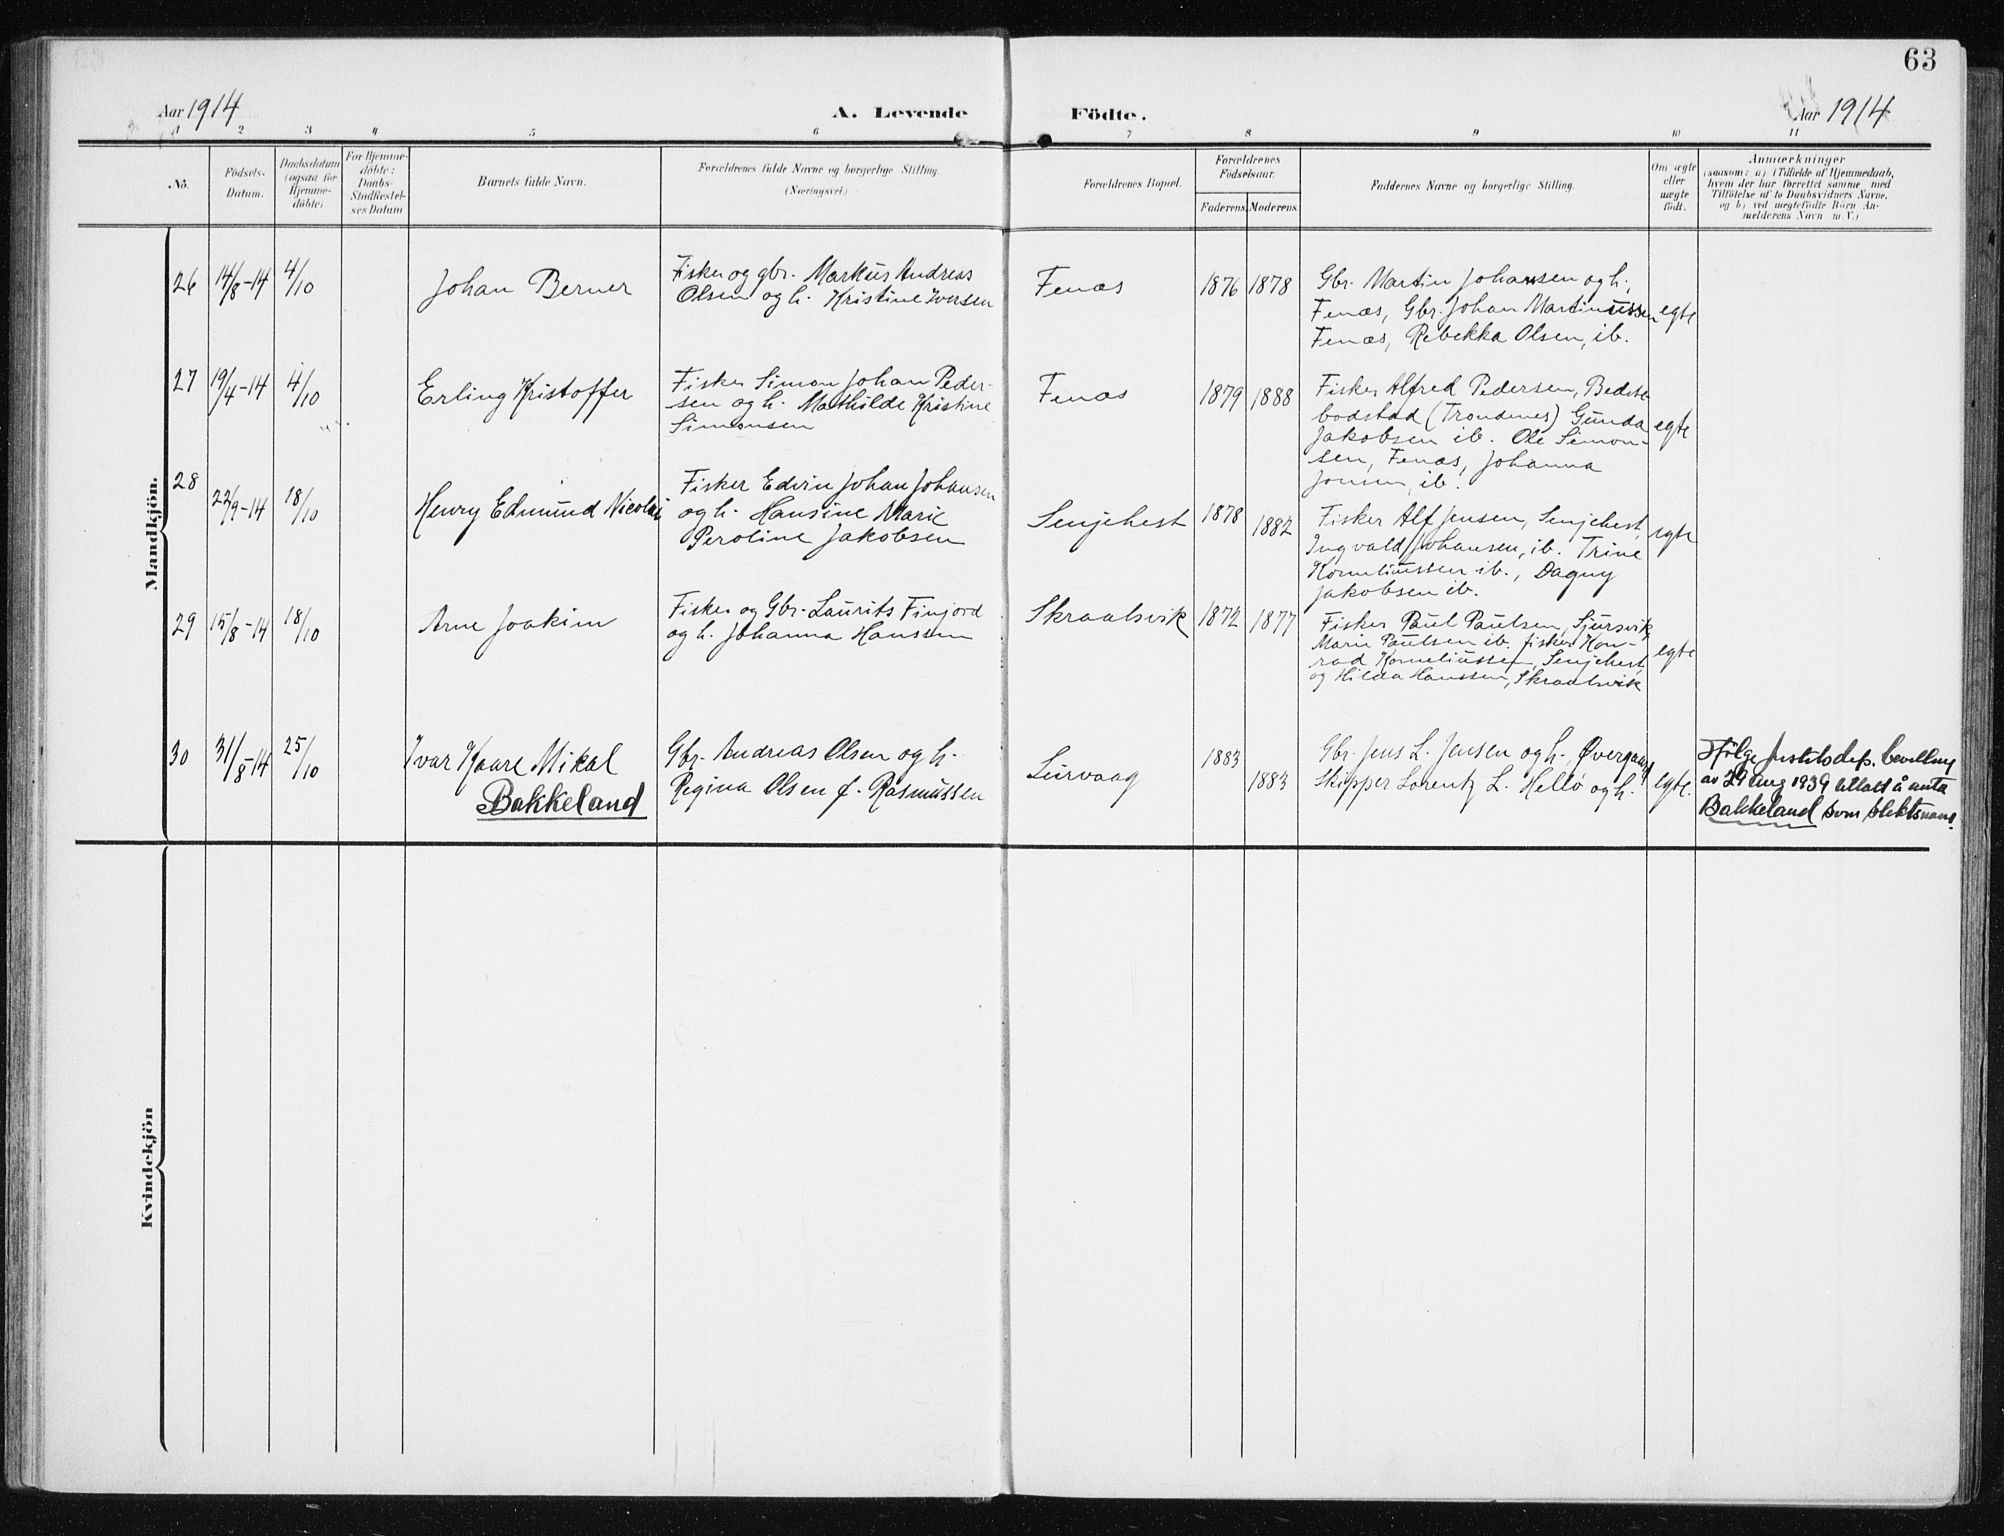 63
Aar 1914
A. Levende Födte.
Aar 1914
1 2 3 4 5 6 7 8 9 10 11
No.
Födsels-
Datum.
Daabsdatum
(ogsaa for
Hjemme-
döbte)
For Hjemme-
döbte:
Daabs-
Stadfæstel-
ses Datum
Barnets fulde Navn.
Forældrenes fulde Navne og borgerlige Stilling.
(Næringsvei.)
Forældrenes Bopæl.
Forældrenes
Födselsaar.
Faderens. Moderens.
Faddernes Navne og borgerlige Stilling.
Om ægte
eller
uægte
födt.
Anmærkninger
(saasom: a) i Tilfælde af Hjemmedaab,
hvem der har forrettet samme, med
Tilföielse af to Daabsvidners Navne.
og b) ved uægtefödte Börn An-
melderens Navn m. V.)
Mandkjön.
26 14/8-14 4/10
Johan Berner
Fisker og gbr. Markus Andreas
Olsen og h. Kristine Iversen
Fenæs
1876 1878
Gbr. Martin Johansen og h.,
Fenæs, Gbr. Johan Martinussen
Fenæs, Rebekka Olsen, ib.
egte
27 19/4-14 4/10
Erling Kristoffer
Fisker Simon Johan Peder-
sen og h. Mathilde Kristine
Simonsen
Fenæs
1879 1888
Fisker Alfred Pedersen,
bodstad (Trondenes) Gunda
Jakobsen ib. Ole Simon-
sen, Fenæs, Johanna
Jonsen, ib.
egte
28 22/9-14 18/10
Henry Edmund Nicolai
Fisker Edvin Johan Johansen
og h. Hansine Marie
Peroline Jakobsen
Senjehest
1878 1882
Fisker Alf Jensen, Senjehest,
Ingvald Johansen, ib. Trine
Korneliussen ib., Dagny
Jakobsen ib.
egte
29 15/8-14 18/10
Arne Joakim
Fisker og Gbr. Laurits Finjord
og h. Johanna Hanssen
Skraalsvik
1872 1877
Fisker Paul Paulsen, Sjursvik,
Marie Paulsen ib. fisker Kon-
rad Korneliussen, Senjehest,
og Hilda Hanssen, Skraalsvik
egte
30 31/8-14 25/10
Ivar Kaare Mikal
Bakkeland
Gbr. Andreas Olsen og h.
Regina Olsen f. Rasmussen
Lervaag
1883 1883
Gbr. Jens L. Jensen og h. Øvergaard
Skipper Lorentz L. Hellø og h.
egte.
Ifölge Justitsdep. bevilling
av 29 aug 1939 tillatt å anta
Bakkeland som slektsnavn.
Kvindekjön